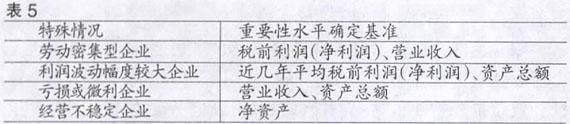 表5
特殊情况 重要性水平确定基准
劳动密集型企业 税前利润(净利润)、营业收入
利润波动幅度较大企业 近几年平均税前利润(净利润)、资产总额
亏损或微利企业 营业收入、资产总额
经营不稳定企业 净资产